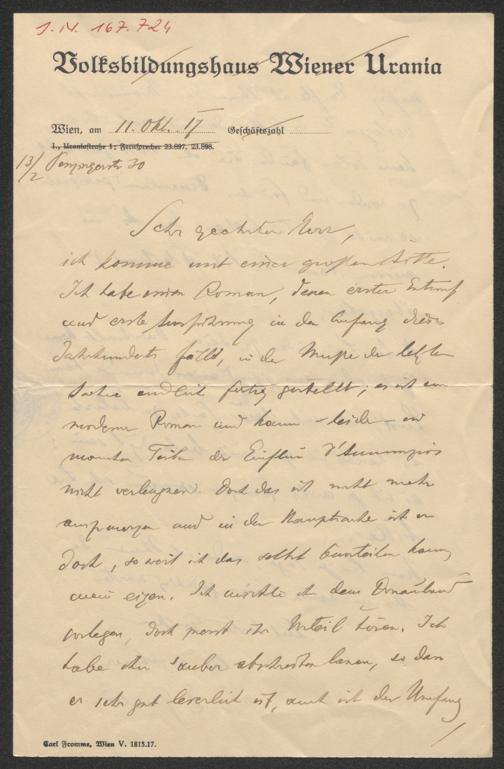 I.N. 167.724
Volksbildungshaus Wiener Urania
Wien, am 11. Okt. 17 Geschäftszahl
1., Uraniastraße 1; Fernsprecher 23.597, 23.598.
13/2
Sehr geehrter Herr,
ich komme mit einer großen Bitte.
Ich habe einen Roman, dessen erster Entwurf
und erste Ausführung in den Anfang dieses
Jahrhunderts fällt, in der Muße der letzten
Jahre endlich fertig gestellt; es ist ein
moderner Roman und kann – leider – an
manchen Teilen den Einfluß d'Annunzios
nicht verleugnen. Doch das ist nicht mehr
und in der Hauptsache ist er
doch, soweit ich das selbst beurteilen kann,
mein eigen. Ich möchte ihn dem Donauland
vorlegen, doch zuerst Ihr Urteil hören. Ich
habe ihn sauber abschreiben lassen, so dass
er sehr gut leserlich ist, auch ist der Umfang
Carl Fromme, Wien V. 1815.17.